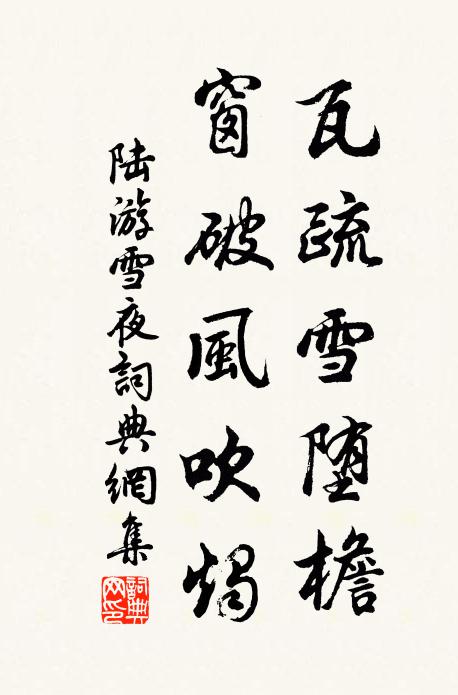 瓦疏雪堕檐
窗破風吹燭
陆游雪夜詞典網集
詞典網印